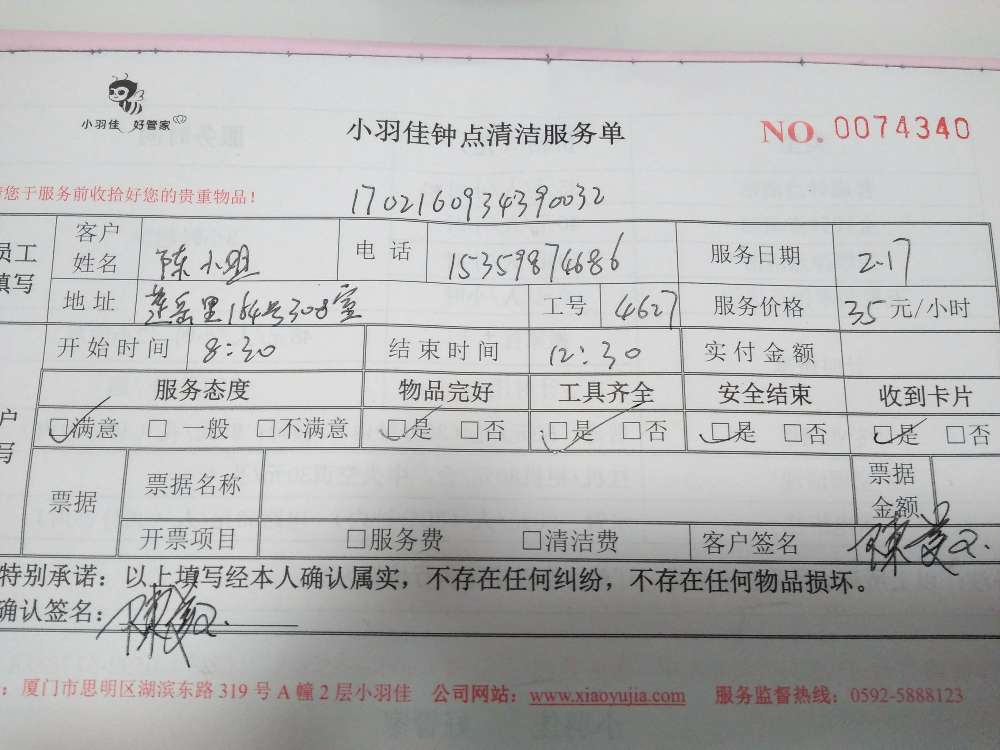 小羽佳 好管家
小羽佳钟点清洁服务单
NO. 0074340
请您于服务前收拾好您的贵重物品！
1702160934390032
员工填写 客户姓名 陈小姐 电 话 15359874686 服务日期 2.17
地 址 莲岳里164号308室 工号 4627 服务价格 35 元/小时
开始时间 8:30 结束时间 12:30 实付金额
服务态度 物品完好 工具齐全 安全结束 收到卡片
户写 ☑满意 □ 一般 □不满意 ☑是 □否 ☑是 □否 ☑是 □否 ☑是 □否
票据 票据名称 票据金额
开票项目 □服务费 □清洁费 客户签名
特别承诺：以上填写经本人确认属实，不存在任何纠纷，不存在任何物品损坏。
确认签名：
：厦门市思明区湖滨东路 319 号 A 幢 2 层小羽佳 公司网站：www.xiaoyujia.com 服务监督热线：0592-5888123